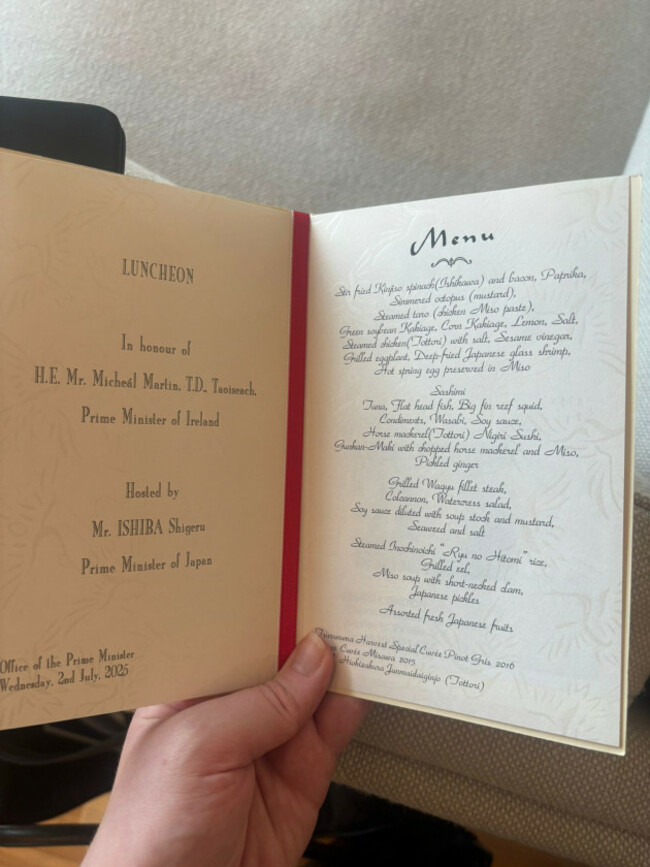 LUNCHEON
In honour of
H.E. Mr. Micheál Martin, T.D., Taoiseach,
Prime Minister of Ireland
Hosted by
Mr. ISHIBA Shigeru
Prime Minister of Japan
Office of the Prime Minister
Wednesday, 2nd July, 2025
Menu
Stir fried Kinjiso spinach(Ishikawa) and bacon, Paprika,
Simmered octopus (mustard),
Steamed taro (chicken Miso paste),
Green soybean Kakiage, Corn Kakiage, Lemon, Salt,
Steamed chicken(Tottori) with salt, Sesame vinegar,
Grilled eggplant, Deep-fried Japanese glass shrimp,
Hot spring egg preserved in Miso
Sashimi
Tuna, Flat head fish, Big fin reef squid,
Condiments, Wasabi, Soy sauce,
Horse mackerel(Tottori) Nigiri Sushi,
Gunkan-Maki with chopped horse mackerel and Miso,
Pickled ginger
Grilled Wagyu fillet steak,
Colcannon, Watercress salad,
Soy sauce diluted with soup stock and mustard,
Seaweed and salt
Steamed Inochinoichi "Ryu no Hitomi" rice,
Grilled eel,
Miso soup with short-necked clam,
Japanese pickles
Assorted fresh Japanese fruits
Harvest Special Cuvée Pinot Gris 2016
Cuvée Misawa 2015
Hiokizakura Junmaidaiginjo (Tottori)